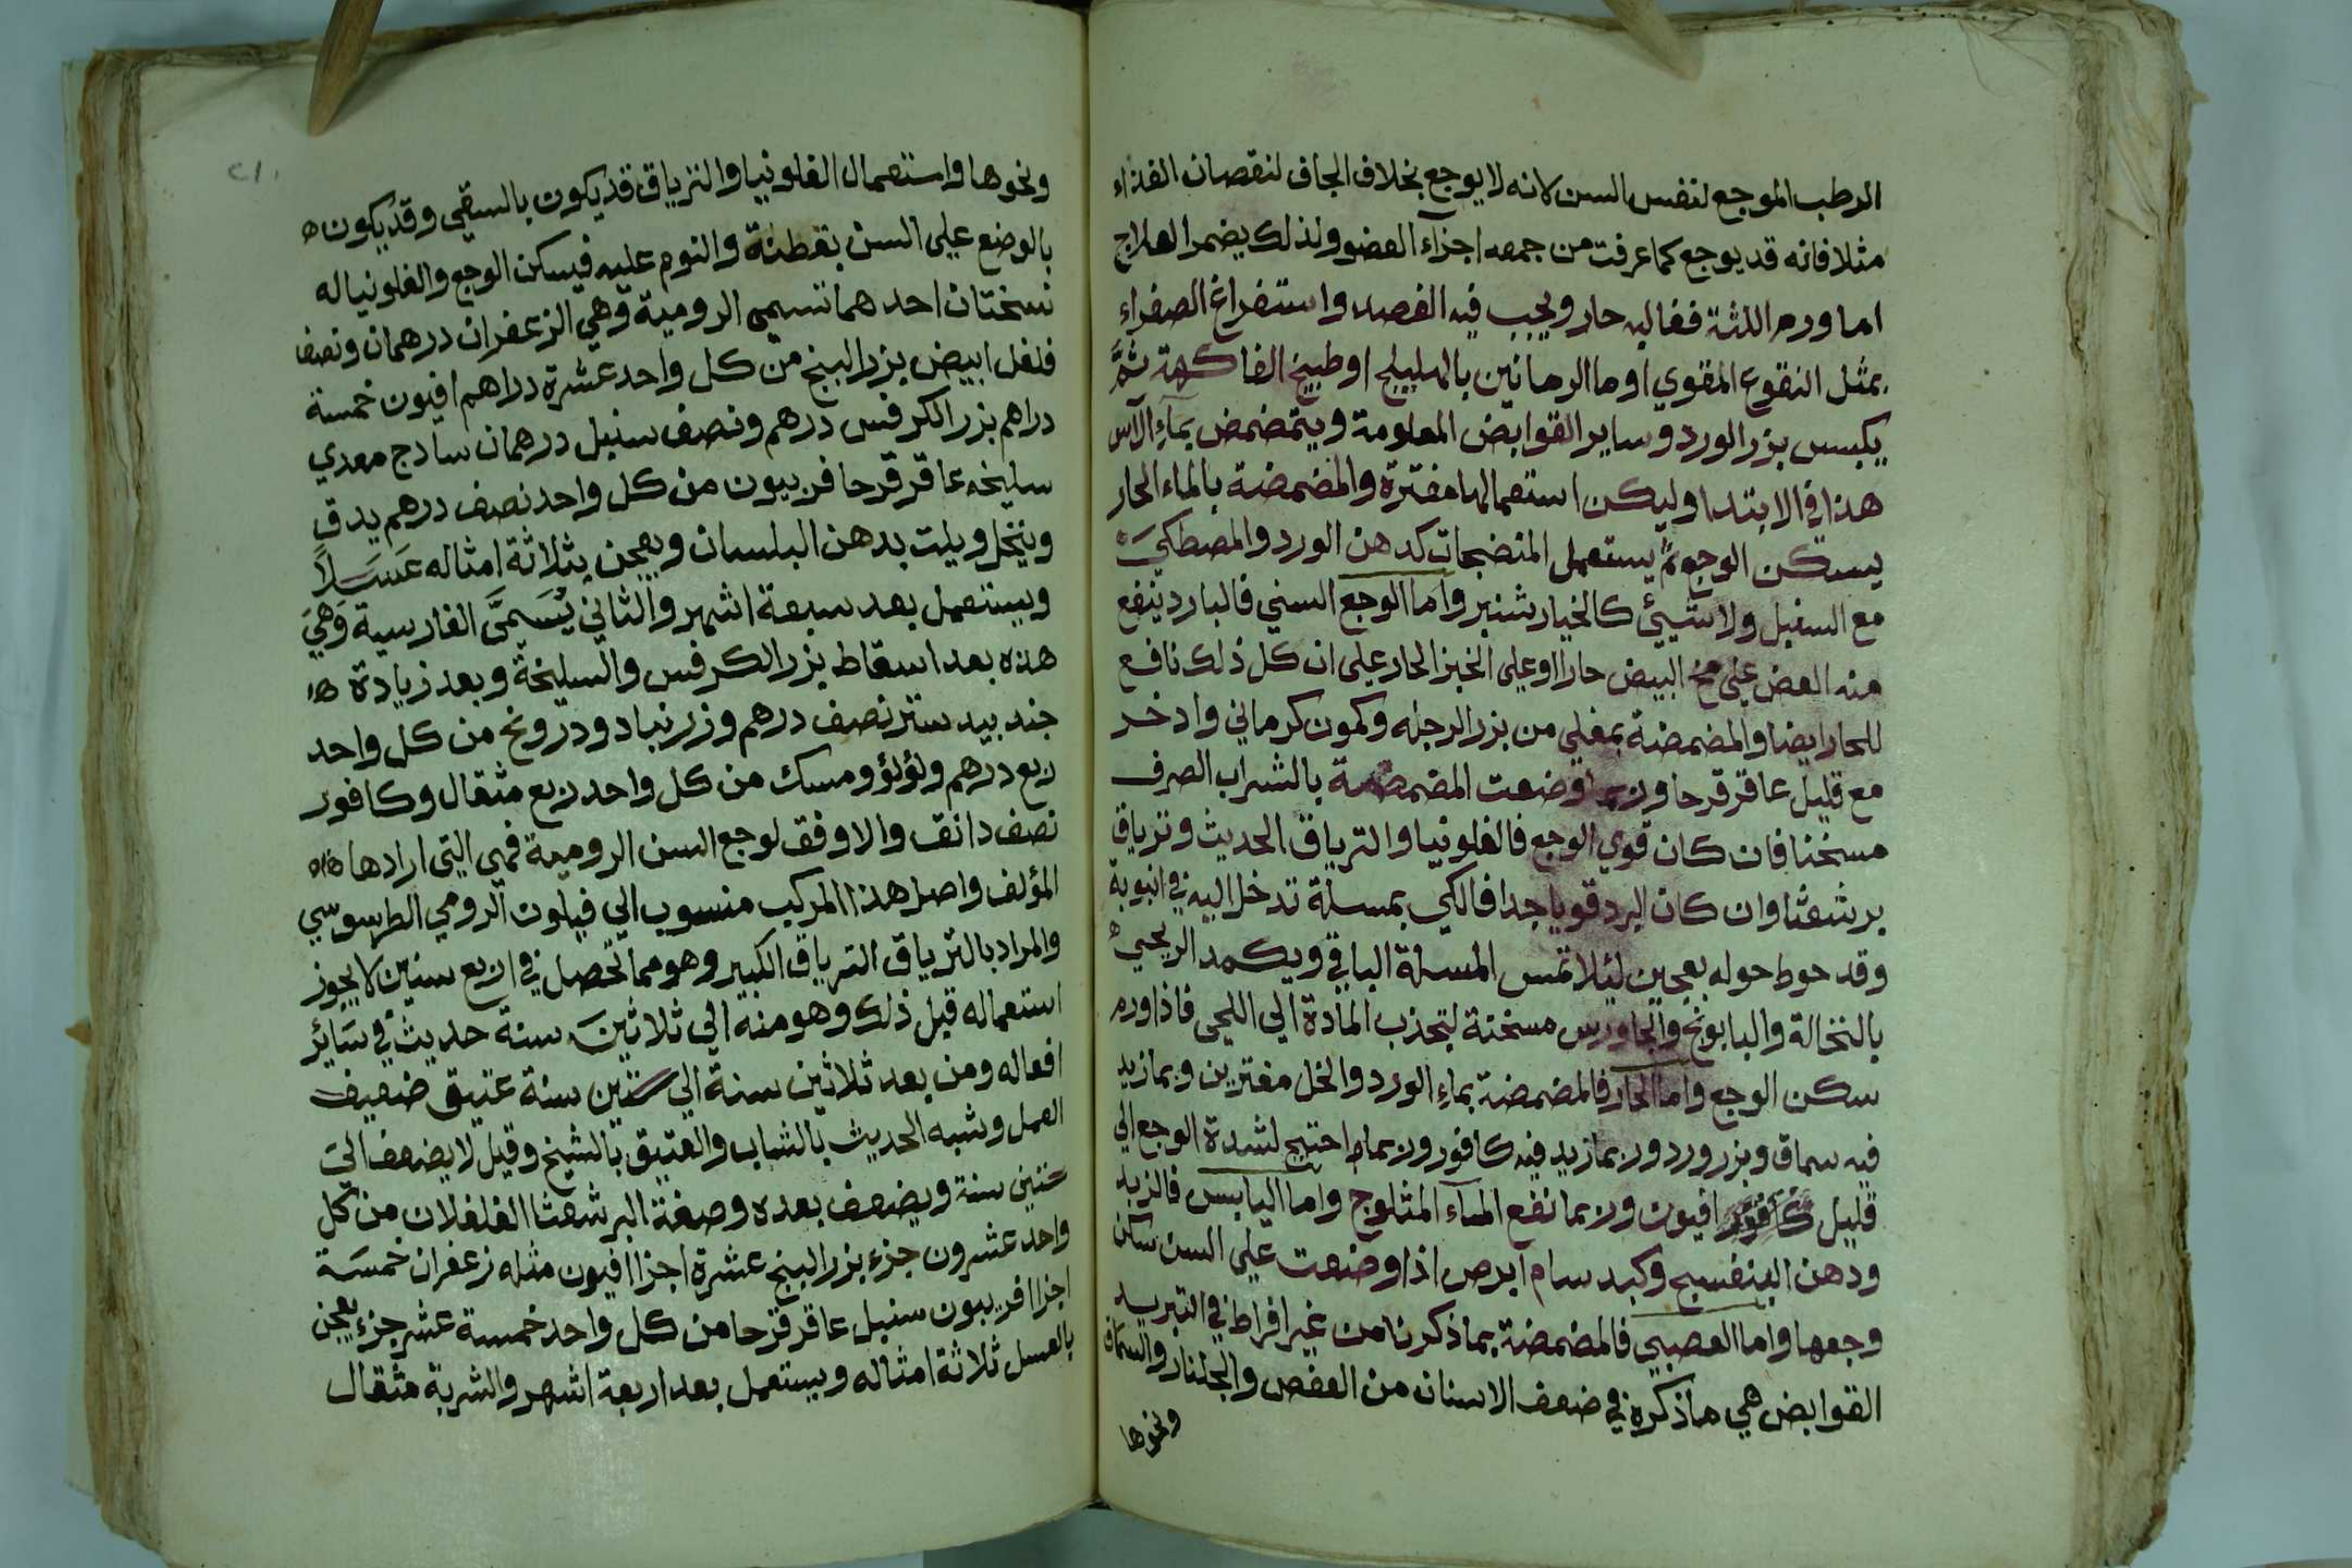 الرطب الموجع لنفس السن لانه لا يوجع بخلاف الجاف لنقصان الغذاء
مثلا فانه قد يوجع كما عرفت من جمعه اجزآء العضو ولذلك يضمر العلاج
اما ورم اللثة فغالبه حار ويجب فيه الفصد واستفراغ الصفراء
بمثل النقوع المقوي او ما الرمانين بالهليلج او طبيخ الفاكهة ثمَّ
يكبس بزر الورد وساير القوابض المعلومة ويتمضمض بمآءِ الآس
هذا في الابتدا وليكن استعمالها مفترة والمضمضة بالماء الحار
يسكن الوجع ثم يستعمل المنضجات كدهن الورد والمصطكي
مع السنبل ولا شيئ كالخيار شنبر واما الوجع السني فالبارد ينفع
منه العض على مح البيض حارا او على الخبز الحار على ان كل ذلك نافع
للحار ايضا والمضمضة بمغلي من بزر الرجله وكمون كرماني واذخر
مع قليل عاقر قرحا وضعت المضمضة بالشراب الصرف
مسخنا فان كان قوي الوجع فالفلونيا والترياق الحديث وترياق
برشعثا وان كان البرد قويا جدا فالكي بمسلة تدخل اليه في انبوبة
وقد حوط حوله بعجين لئلا تمس المسلة الباقي ويكمد الريحي
بالنخالة والبابونج والجاورس مسخنة لتجذب المادة الي اللحي فاذا ورم
سكن الوجع واما الحار فالمضمضة بماءِ الورد والخل مفترين وبما زيد
فيه سماق وبزر ورد وربما زيد فيه كافور وربما احتيج لشدة الوجع الي
قليل افيون وربما نفع المآء المثلوج واما اليابس فالزبد
ودهن البنفسج وكبد سام ابرص اذا وضعت علي السن سكن
وجعها واما العصبي فالمضمضة بما ذكرنا من غير افراط في التبريد
القوابض هي ما ذكره في ضعف الاسنان من العفص والجلنار والسماق
ونحوها
ونحوها واستعمال الفلونيا والترياق قد يكون بالسقي وقد يكون
بالوضع علي السن بقطنة والنوم عليه فيسكن الوجع والفلونيا له
نسختان احدهما تسمي الرومية وهي الزعفران درهمان ونصف
فلفل ابيض بزر البنج من كل واحد عشرة دراهم افيون خمسة
دراهم بزر الكرفس درهم ونصف سنبل درهمان سادج معدي
سليخه عاقر قرحا فربيون من كل واحد نصف درهم يدق
وينخل ويلت بدهن البلسان ويعجن بثلاثة امثاله عَسَلاً
ويستعمل بعد سبعة اشهر والثاني يُسَمىَّ الفارسية وَهيَ
هذه بعد اسقاط بزر الكرفس والسليخة وبعد زيادة
جند بيد ستر نصف درهم وزرنباد ودرونج من كل واحد
ربع درهم ولؤلؤ ومسك من كل واحد ربع مثقال وكافور
نصف دانق والاوفق لوجع السن الرومية فهي التي ارادها
المؤلف واصل هذا المركب منسوب الي فيلون الرومي الطرسوسي
والمراد بالترياق الترياق الكبير وهو مما تحصل في اربع سنين لا يجوز
استعماله قبل ذلك وهو منه الي ثلاثينَ سنة حديث في سَائِر
افعاله ومن بعد ثلاثين سنة الي ستين سنة عتيق ضعيف
العمل وشبه الحديث بالشاب والعتيق بالشيخ وقيل لا يضعف الي
ستين سنة ويضعف بعده وصفة البرشعثا الفلفلان من كل
واحد عشرون جزء بزر البنج عشرة اجزا افيون مثله زعفران خمسَة
اجزا افربيون سنبل عاقر قرحا من كل واحد خمسة عشر جزء يعجن
بالعسل ثلاثة امثاله ويستعمل بعد اربعة اشهر والشربة مثقال